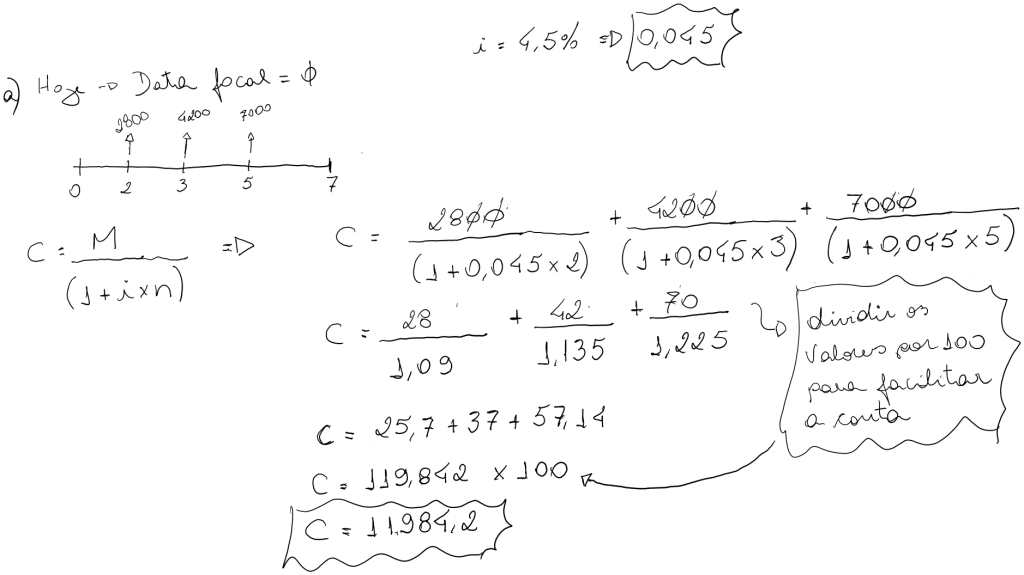 i = 4,5% ⇒ 0,045
a) Hoje → Data focal = ϕ
2800 4200 7000
0 2 3 5 7
C = M / (1 + i × n) ⇒
C = 2800 / (1 + 0,045 × 2) + 4200 / (1 + 0,045 × 3) + 7000 / (1 + 0,045 × 5)
C = 28 / 1,09 + 42 / 1,135 + 70 / 1,225
dividir os
valores por 100
para facilitar
a conta
C = 25,7 + 37 + 57,14
C = 119,842 × 100
C = 11.984,2